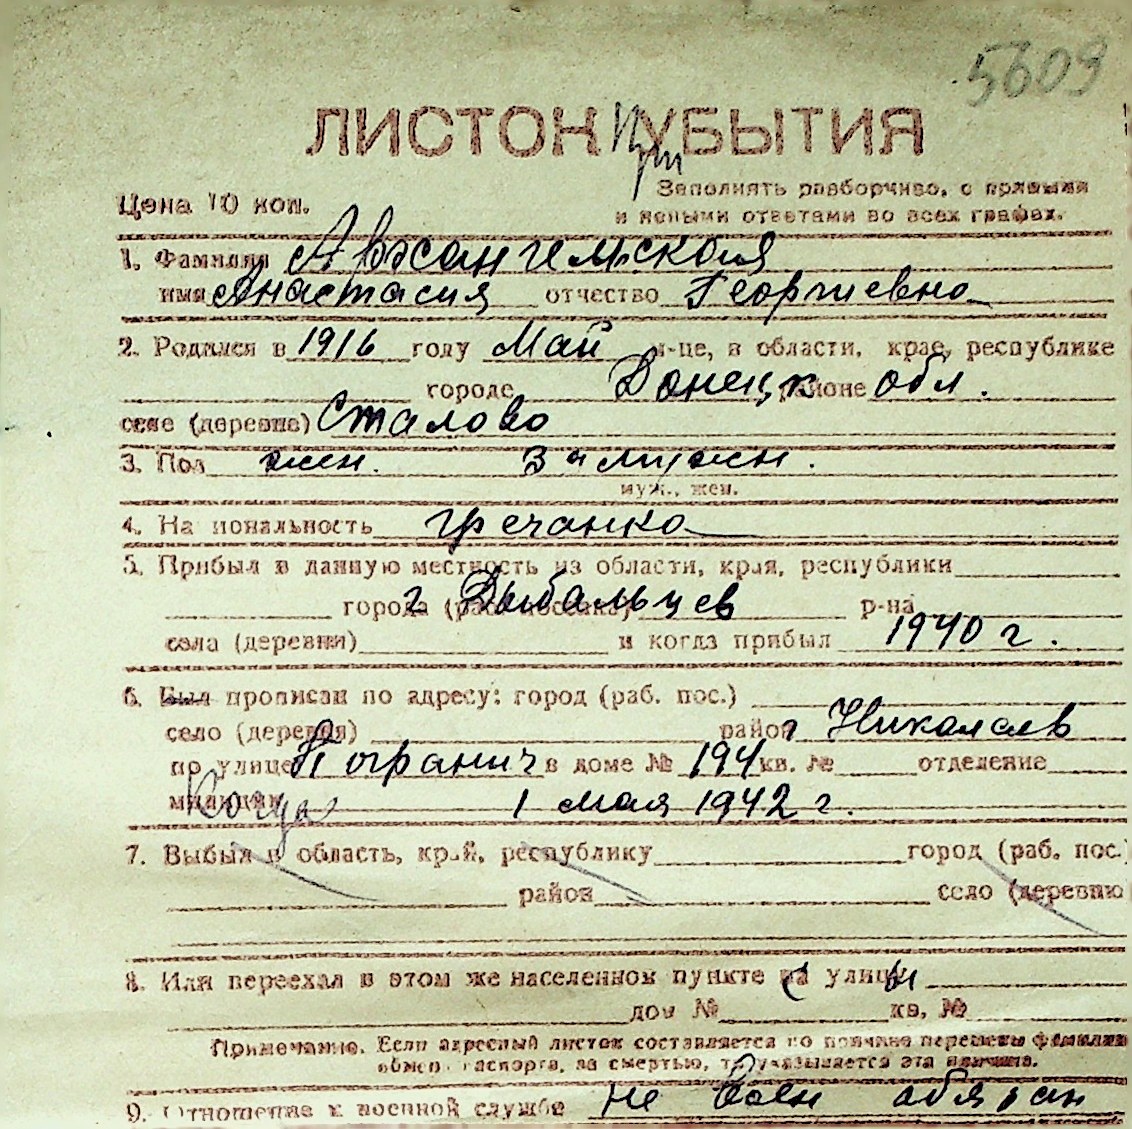 5609
ЛИСТОК При УБЫТИЯ
Цена 10 коп.
Заполнять разборчиво, с прямыми
и ясными ответами во всех графах.
1. Фамилия Архангельская
имя Анастасия отчество Георгиевна
2. Родился в 1916 году Май м-це, в области, крае, республике
городе Донецк районе обл.
селе (деревне) Сталово
3. Пол жен. Замужем.
муж., жен.
4. Национальность гречанка
5. Прибыл в данную местность из области, края, республики
города (раб. поселка) г Дыбальцев р-на
села (деревни) и когда прибыл 1940 г.
6. Был прописан по адресу: город (раб. пос.)
село (деревня) район г Николаев
по улице Погранич в доме № 194 кв. № отделение
милиции Когда 1 мая 1942 г.
7. Выбыл в область, край, республику город (раб. пос.)
район село (деревню
8. Или переехал в этом же населенном пункте с улицы
дом № кв. №
Примечание. Если адресный листок составляется по причине перемены фамилии
обмена паспорта, за смертью, то указывается эта причина.
9. Отношение к военной службе не воен обязан